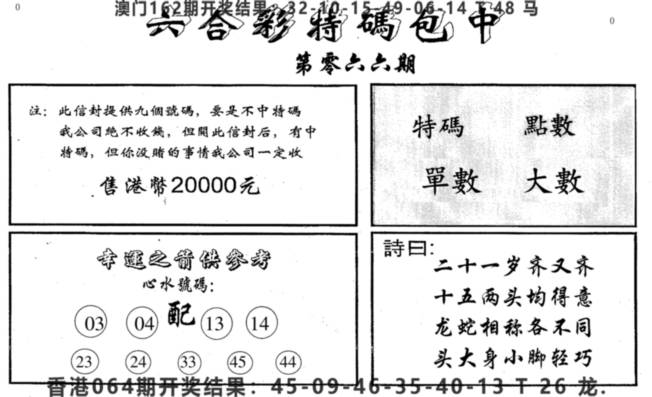 澳门162期开奖结果：32-10-15-49-06-14 T 48 马
六合彩特碼包中
第零六六期
注：此信封提供九個號碼，要是不中特碼
我公司絶不收錢，但開此信封后，有中
特碼，但你没賭的事情我公司一定收
售港幣20000元
特碼 點數
單數 大數
幸運之箭供參考
心水號碼：
03 04 配 13 14
23 24 33 45 44
詩曰：
二十一岁齐又齐
十五两头均得意
龙蛇相称各不同
头大身小脚轻巧
香港064期开奖结果：45-09-46-35-40-13 T 26 龙.